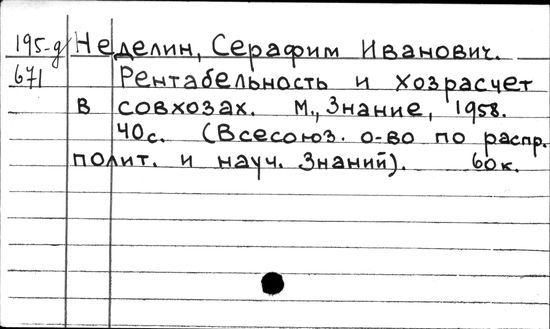 195-д Неделин, Серафим Иванович.
671 Рентабельность и хозрасчет
в совхозах. М., Знание, 1958.
40с. (Всесоюз. о-во по распр.
полит. и науч. Знаний). 60к.